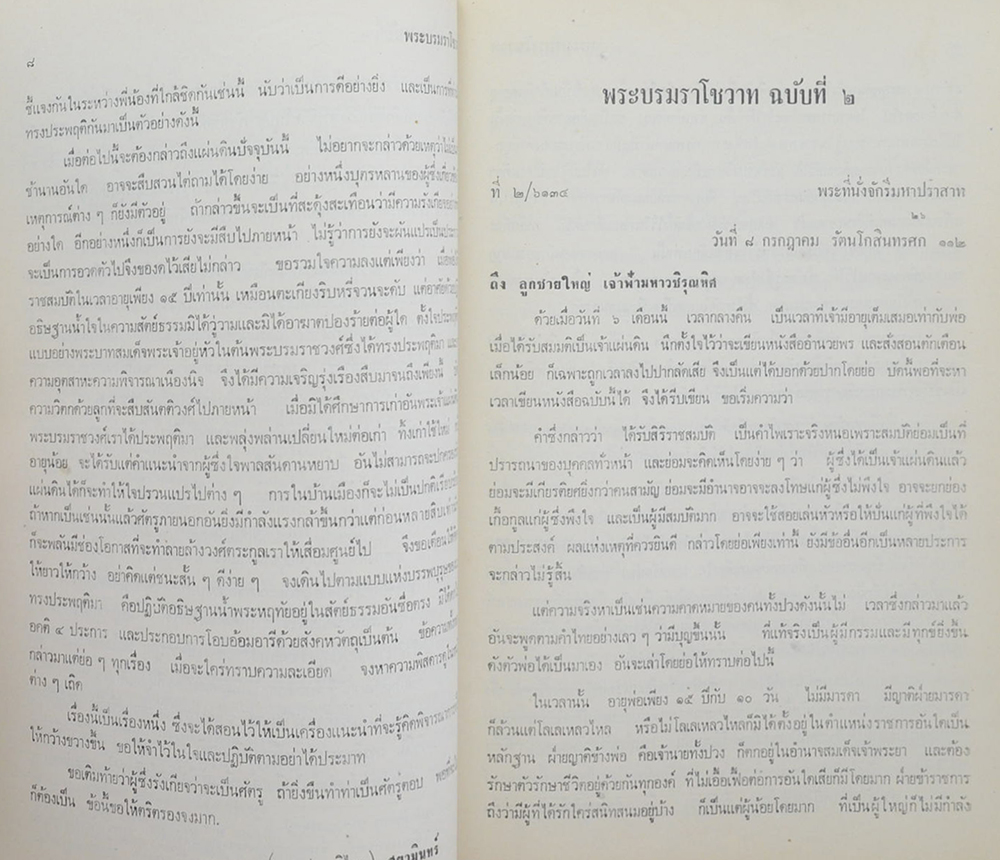 พระบรมราโชว
๘
ชี้แจงกันในระหว่างพี่น้องที่ใกล้ชิดกันเช่นนี้ นับว่าเป็นการดีอย่างยิ่ง และเป็นการที่
ทรงประพฤติกันมาเป็นตัวอย่างดังนี้
เมื่อต่อไปนี้จะต้องกล่าวถึงแผ่นดินปัจจุบันนี้ ไม่อยากจะกล่าวด้วยเหตุว่าไม่
ช้านานอันใด อาจจะสืบสวนไต่ถามได้โดยง่าย อย่างหนึ่งบุตรหลานของผู้ซึ่งเกี่ยว
เหตุการณ์ต่าง ๆ ก็ยังมีตัวอยู่ ถ้ากล่าวขึ้นจะเป็นที่สะดุ้งสะเทือนว่ามีความรังเกียจ
อย่างใด อีกอย่างหนึ่งก็เป็นการยังจะมีสืบไปภายหน้า ไม่รู้ว่าการยังจะผันแปรเป็น
จะเป็นการอวดตัวไปจึงของดไว้เสียไม่กล่าว ขอรวมใจความลงแต่เพียงว่า
ราชสมบัติในเวลาอายุเพียง ๑๕ ปีเท่านั้น เหมือนตะเกียงริบหรี่จวนจะดับ แต่อาศัยด้วย
อธิษฐานน้ำใจในความสัตย์ธรรมมิได้วู่วามและมิได้อาฆาตปองร้ายต่อผู้ใด ตั้งใจ
แบบอย่างพระบาทสมเด็จพระเจ้าอยู่หัวในต้นพระบรมราชวงศ์ซึ่งได้ทรงประพฤติมา
ความอุตสาหะความพิจารณาเนืองนิจ จึงได้มีความเจริญรุ่งเรืองสืบมาจนถึงเพียงนี้
ความวิตกด้วยลูกที่จะสืบสันตติวงศ์ไปภายหน้า เมื่อมิได้ศึกษาการเก่าอันพระเจ้า
พระบรมราชวงศ์เราได้ประพฤติมา และพลุ่งพล่านเปลี่ยนใหม่ต่อเก่า ทั้งเก่าใช้ใหม่
อายุน้อย จะได้รับแต่คำแนะนำจากผู้ซึ่งใจพาลสันดานหยาบ อันไม่สามารถจะ
แผ่นดินได้ก็จะทำให้ใจปรวนแปรไปต่าง ๆ การในบ้านเมืองก็จะไม่เป็นปกติ
ถ้าหากเป็นเช่นนั้นแล้วศัตรูภายนอกอันยิ่งมีกำลังแรงกล้าขึ้นกว่าแต่ก่อนหลายสิบเท่า
ก็จะพลันมีช่องโอกาสที่จะทำลายล้างวงศ์ตระกูลเราให้เสื่อมศูนย์ไป จึงขอเตือน
ให้ยาวให้กว้าง อย่าคิดแต่ชนะสั้น ๆ ดีง่าย ๆ จงเดินไปตามแบบแห่งบรรพบุรุษ
ทรงประพฤติมา คือปฏิบัติอธิษฐานน้ำพระหฤทัยอยู่ในสัตย์ธรรมอันซื่อตรง มิได้
อคติ ๔ ประการ และประกอบการโอบอ้อมอารีด้วยสังคหวัตถุเป็นต้น ข้อความ
กล่าวมาแต่ย่อ ๆ ทุกเรื่อง เมื่อจะใคร่ทราบความละเอียด จงหาความพิสดารดู
ต่าง ๆ เถิด
เรื่องนี้เป็นเรื่องหนึ่ง ซึ่งจะได้สอนไว้ให้เป็นเครื่องแนะนำที่จะรู้คิดพิจารณา
ให้กว้างขวางขึ้น ขอให้จำไว้ในใจและปฏิบัติตามอย่าได้ประมาท
ขอเติมท้ายว่าผู้ซึ่งรังเกียจว่าจะเป็นศัตรู ถ้ายิ่งขืนทำท่าเป็นศัตรูตอบ
ก็ต้องเป็น ข้อนี้ขอให้ตริตรองจงมาก.
สยามินทร์
พระบรมราโชวาท ฉบับที่ ๒
ที่ ๒/๖๑๓๔ พระที่นั่งจักรีมหาปราสาท
๒๖
วันที่ ๘ กรกฎาคม รัตนโกสินทรศก ๑๑๒
ถึง ลูกชายใหญ่ เจ้าฟ้ามหาวชิรุณหิศ
ด้วยเมื่อวันที่ ๖ เดือนนี้ เวลากลางคืน เป็นเวลาที่เจ้ามีอายุเต็มเสมอเท่ากับพ่อ
เมื่อได้รับสมมติเป็นเจ้าแผ่นดิน นึกตั้งใจไว้ว่าจะเขียนหนังสืออำนวยพร และสั่งสอนตักเตือน
เล็กน้อย ก็เฉพาะถูกเวลาลงไปปากลัดเสีย จึงเป็นแต่ได้บอกด้วยปากโดยย่อ บัดนี้พอที่จะหา
เวลาเขียนหนังสือฉบับนี้ได้ จึงได้รีบเขียน ขอเริ่มความว่า
คำซึ่งกล่าวว่า ได้รับสิริราชสมบัติ เป็นคำไพเราะจริงหนอเพราะสมบัติย่อมเป็นที่
ปรารถนาของบุคคลทั่วหน้า และย่อมจะคิดเห็นโดยง่าย ๆ ว่า ผู้ซึ่งได้เป็นเจ้าแผ่นดินแล้ว
ย่อมจะมีเกียรติยศยิ่งกว่าคนสามัญ ย่อมจะมีอำนาจอาจจะลงโทษแก่ผู้ซึ่งไม่พึงใจ อาจจะยกย่อง
เกื้อกูลแก่ผู้ซึ่งพึงใจ และเป็นผู้มีสมบัติมาก อาจจะใช้สอยเล่นหัวหรือให้ปันแก่ผู้ที่พึงใจได้
ตามประสงค์ ผลแห่งเหตุที่ควรยินดี กล่าวโดยย่อเพียงเท่านี้ ยังมีข้ออื่นอีกเป็นหลายประการ
จะกล่าวไม่รู้สิ้น
แต่ความจริงหาเป็นเช่นความคาดหมายของคนทั้งปวงดังนั้นไม่ เวลาซึ่งกล่าวมาแล้ว
อันจะพูดตามคำไทยอย่างเลว ๆ ว่ามีบุญขึ้นนั้น ที่แท้จริงเป็นผู้มีกรรมและมีทุกข์ยิ่งขึ้น
ดังตัวพ่อได้เป็นมาเอง อันจะเล่าโดยย่อให้ทราบต่อไปนี้
ในเวลานั้น อายุพ่อเพียง ๑๕ ปีกับ ๑๐ วัน ไม่มีมารดา มีญาติฝ่ายมารดา
ก็ล้วนแต่โลเลเหลวไหล หรือไม่โลเลเหลวไหลก็มิได้ตั้งอยู่ในตำแหน่งราชการอันใดเป็น
หลักฐาน ฝ่ายญาติข้างพ่อ คือเจ้านายทั้งปวง ก็ตกอยู่ในอำนาจสมเด็จเจ้าพระยา และต้อง
รักษาตัวรักษาชีวิตอยู่ด้วยกันทุกองค์ ที่ไม่เอื้อเฟื้อต่อการอันใดเสียก็มีโดยมาก ฝ่ายข้าราชการ
ถึงว่ามีผู้ที่ได้รักใคร่สนิทสนมอยู่บ้าง ก็เป็นแต่ผู้น้อยโดยมาก ที่เป็นผู้ใหญ่ก็ไม่มีกำลัง